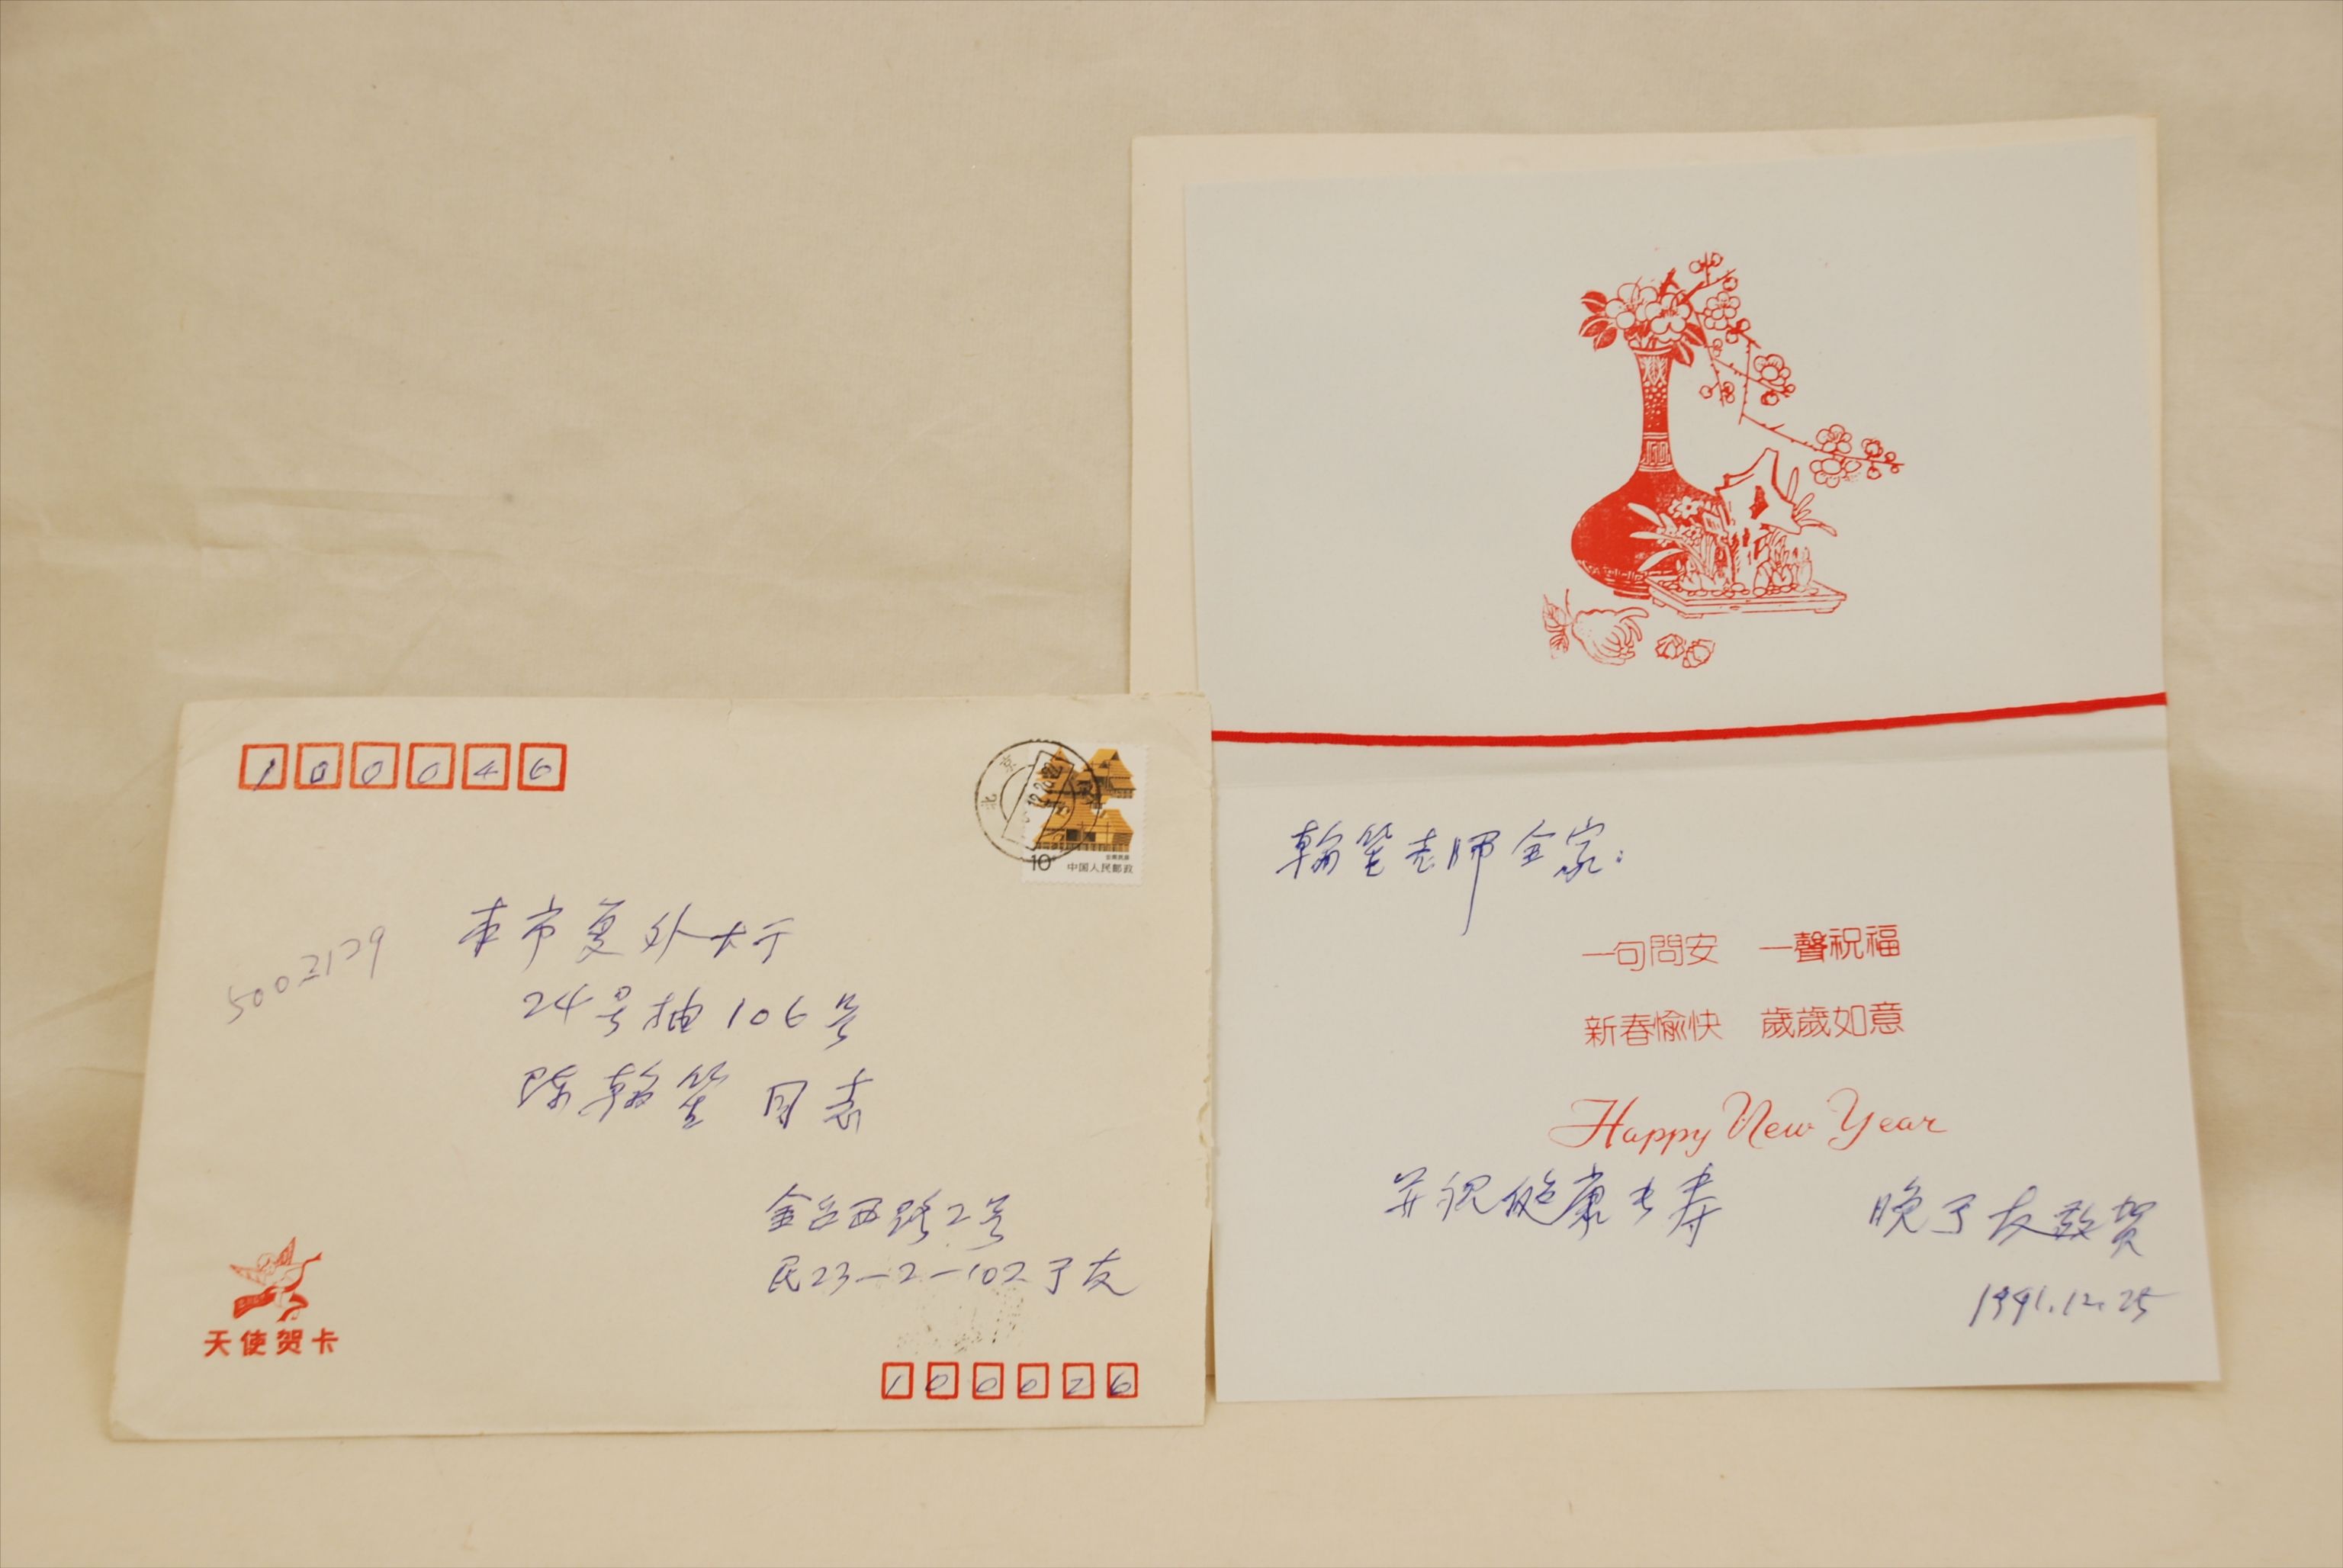 100046
北京
12.26.22
10分
云南民居
中国人民邮政
本市复外大厅
24号楼106号
陈翰笙 同志
5002129
金台西路2号
民23-2-102 于友
天使贺卡
100026
翰笙老师全家:
一句問安 一聲祝福
新春愉快 歲歲如意
Happy New Year
并祝健康长寿
晚 于友敬贺
1991.12.25